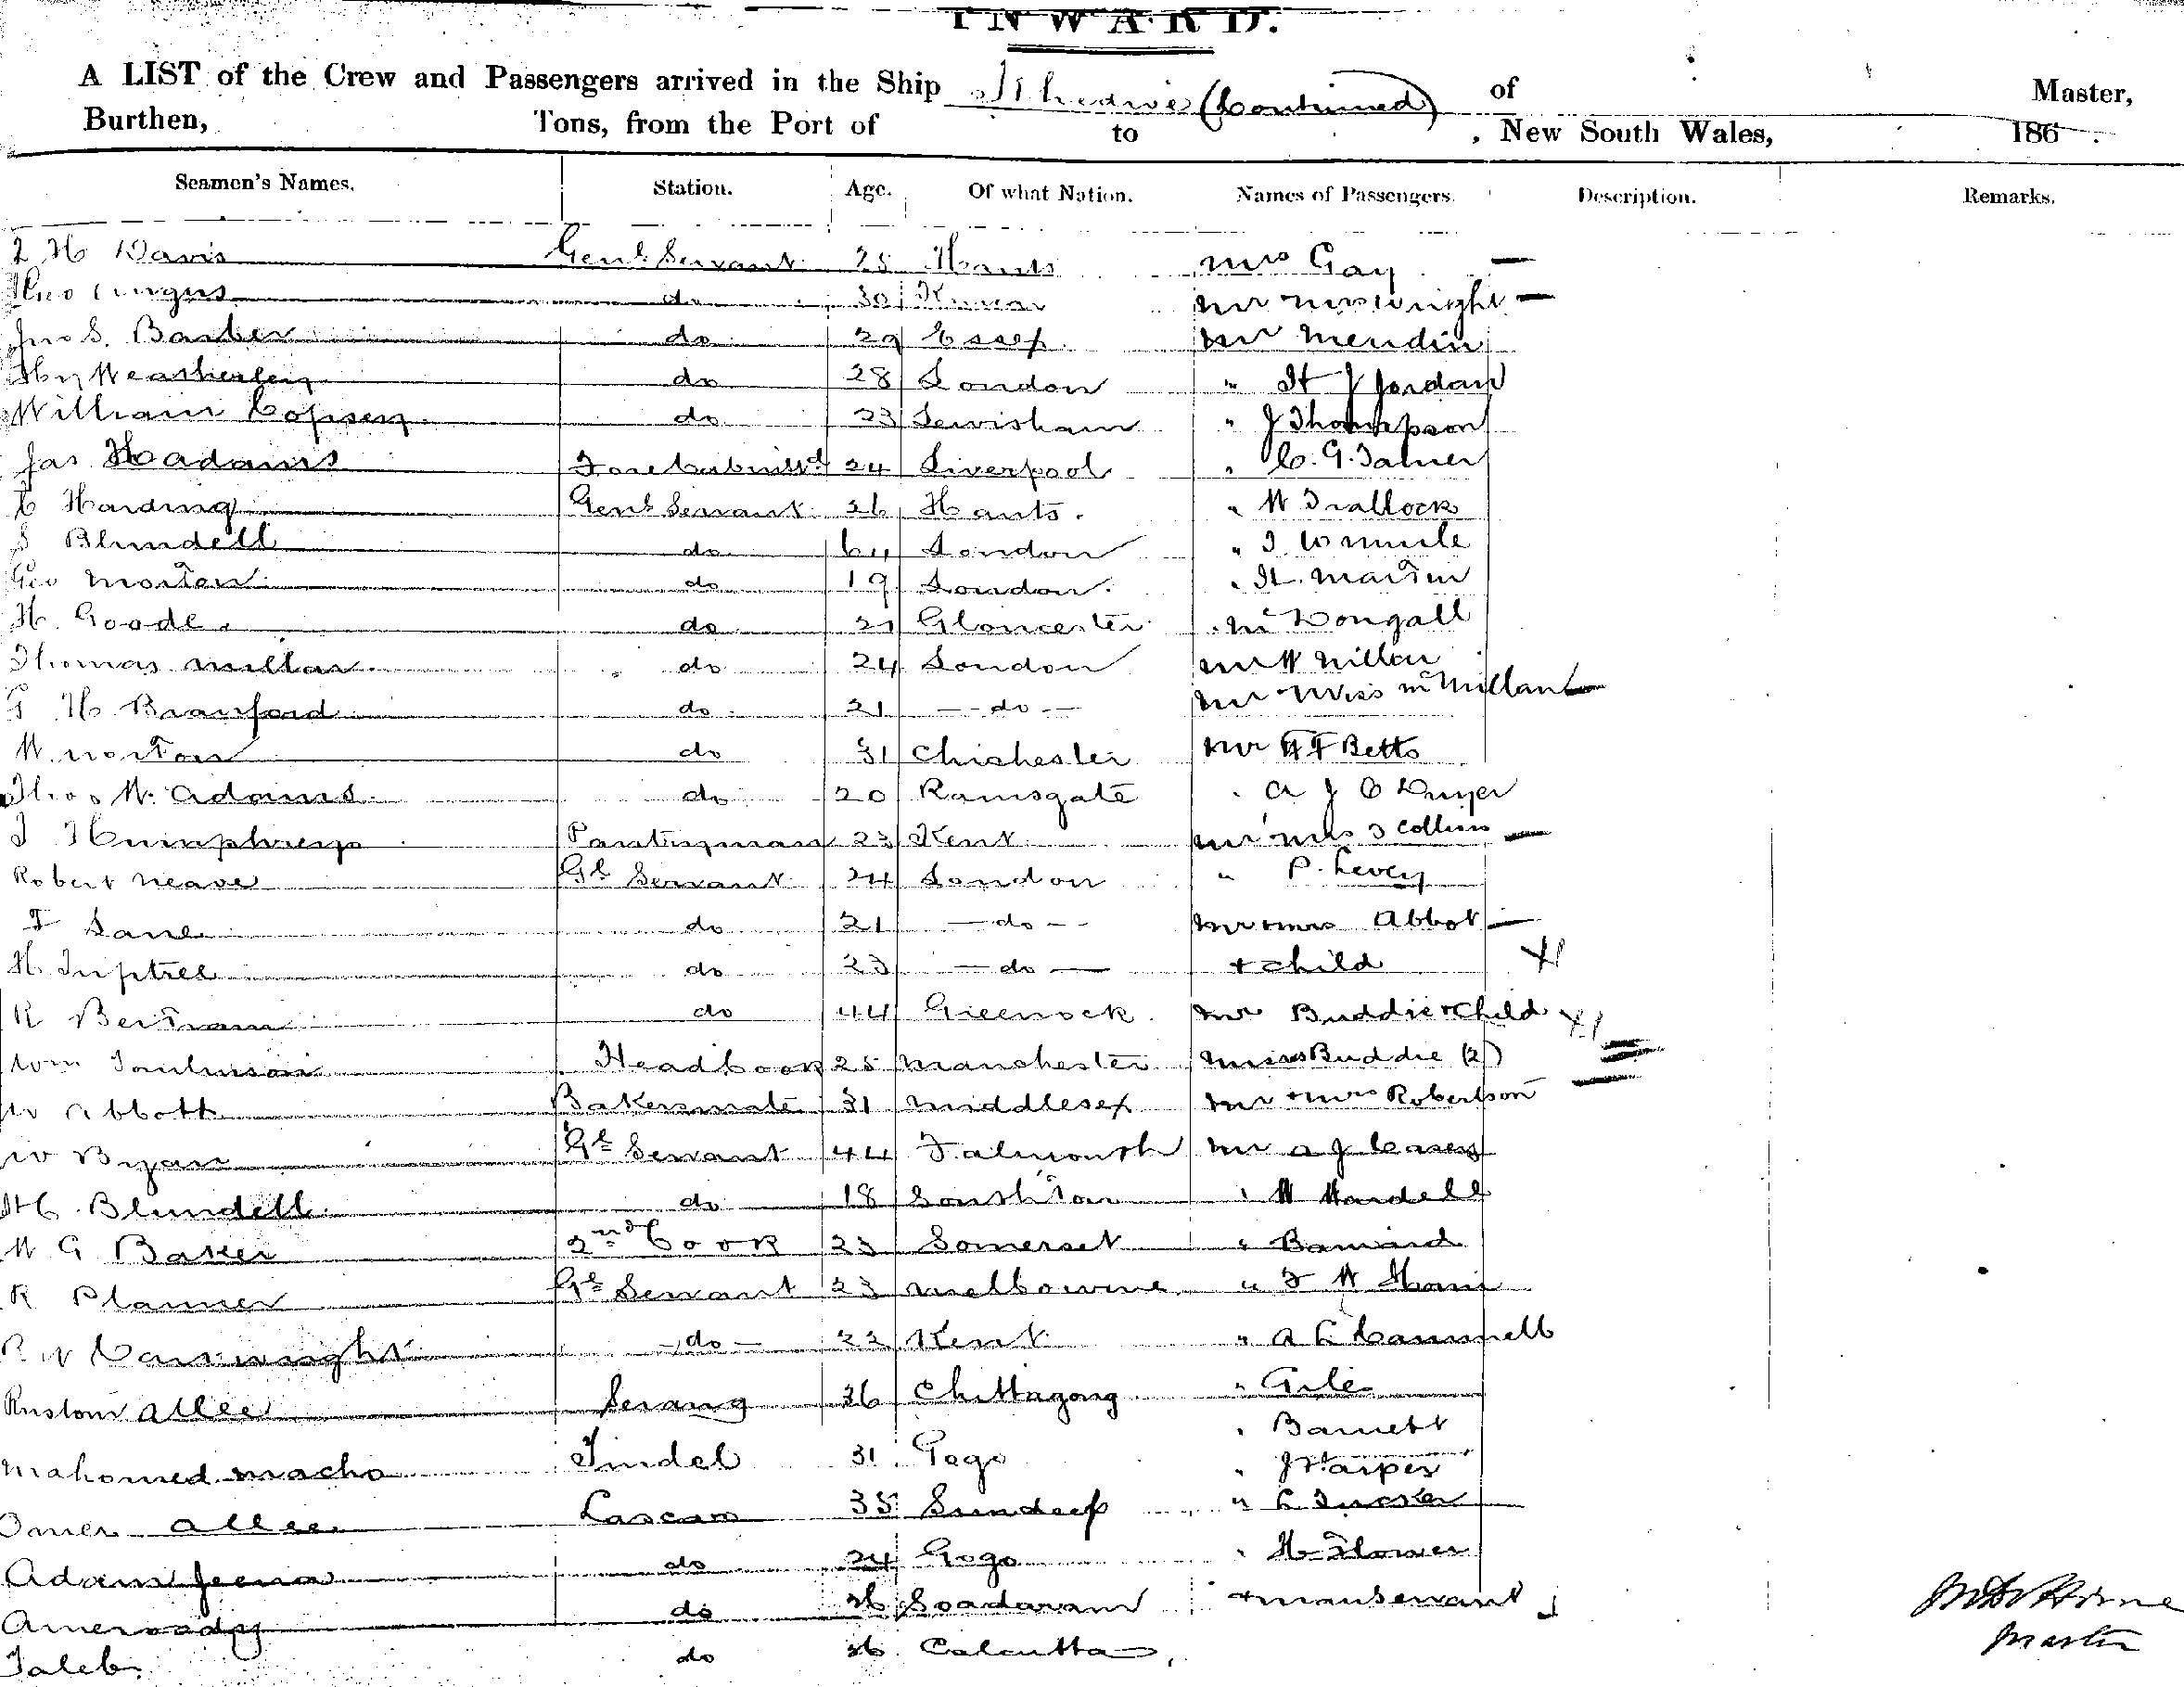 INWARD.
A LIST of the Crew and Passengers arrived in the Ship Khedive (Continued) of Master,
Burthen, Tons, from the Port of to , New South Wales, 186 .
Seamen's Names. Station. Age. Of what Nation. Names of Passengers. Description. Remarks.
H Davis Genl Servant 25 Hants Mrs Gay —
Angus do 30 Mr Mrs Wright —
Jno S. Barber do 29 Essex Mr Mendin
Hy Weatherley do 28 London " H J Jordan
William Copsey do 23 Lewisham " J Thompson
Jas H Adams 24 Liverpool " C. G.
C Harding Genl Servant 26 Hants. " W Trallock
S Blundell do 64 London "
Geo Morten do 19 London. " H. Martin
H. Goode do 21 Gloucester " McDougall
Thomas Millar do 24 London Mr W
G H Branford do 21 — do — Mr Miss McMillan —
W. Norton do 31 Chichester Mr Betts
Thos W. Adams do 20 Ramsgate " A J O Dwyer
J Humphreys Pantryman 23 Kent Mr Mrs Collins —
Robert Neave Gl Servant 24 London " P. Levey
F Lane do 21 — do — Mr Mrs Abbot —
H. Tuptree do 23 — do — + child X1
R Bertram do 44 Greenock Mr Buddie + Child X1
Wm Tomlinson Head Cook 25 Manchester Miss Buddie (2)
W Abbott Bakersmate 31 Middlesex Mr + Mrs Robertson
W Byan Gl Servant 44 Falmouth Mr A J Casey
H C Blundell do 18 Southton " W Mardell
W G Baker 2nd Cook 23 Somerset " Barnard
R Planner Gl Servant 23 Melbourne " F W
R W Cartwright — do — 22 Kent " A C Cammell
Rustom Allee Serang 36 Chittagong " Gile
" Barnett
Mahomed Macho Tindel 31 Gogo " J Harper
Omer Allee Lascar 35 Sundeep " Tucker
Adam Jeena do 24 Gogo " H Flower
Ameroody do 36 + manservant
Taleb do 36 Calcutta
Horne
Master